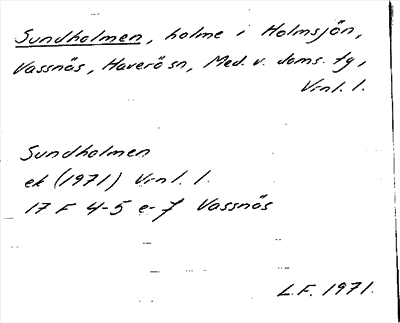 Sundholmen, holme i Holmsjön,
Vassnäs, Haverö sn, Med. v. doms. tg,
Vrnl. l.
Sundholmen
ek (1971) Vrnl. l.
17 F 4-5 e-f Vassnäs
L.F. 1971.